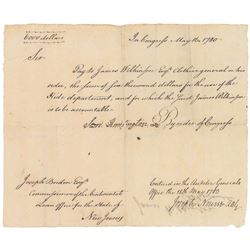 In Congress May the 1780
6000 dollars
Sir
Pay to James Wilkinson Esqr. Clothier general or
order, the sum of six thousand dollars for the use of the
Hide department, and for which the said James Wilkinson
is to be accountable.
Saml. Huntington President of Congress
Joseph Borden Esqr.
Commissioner of the Continental
Loan office for the State of
New Jersey
Entered in the Auditor Generals
Office the 18th May 1780
Joseph Nourse